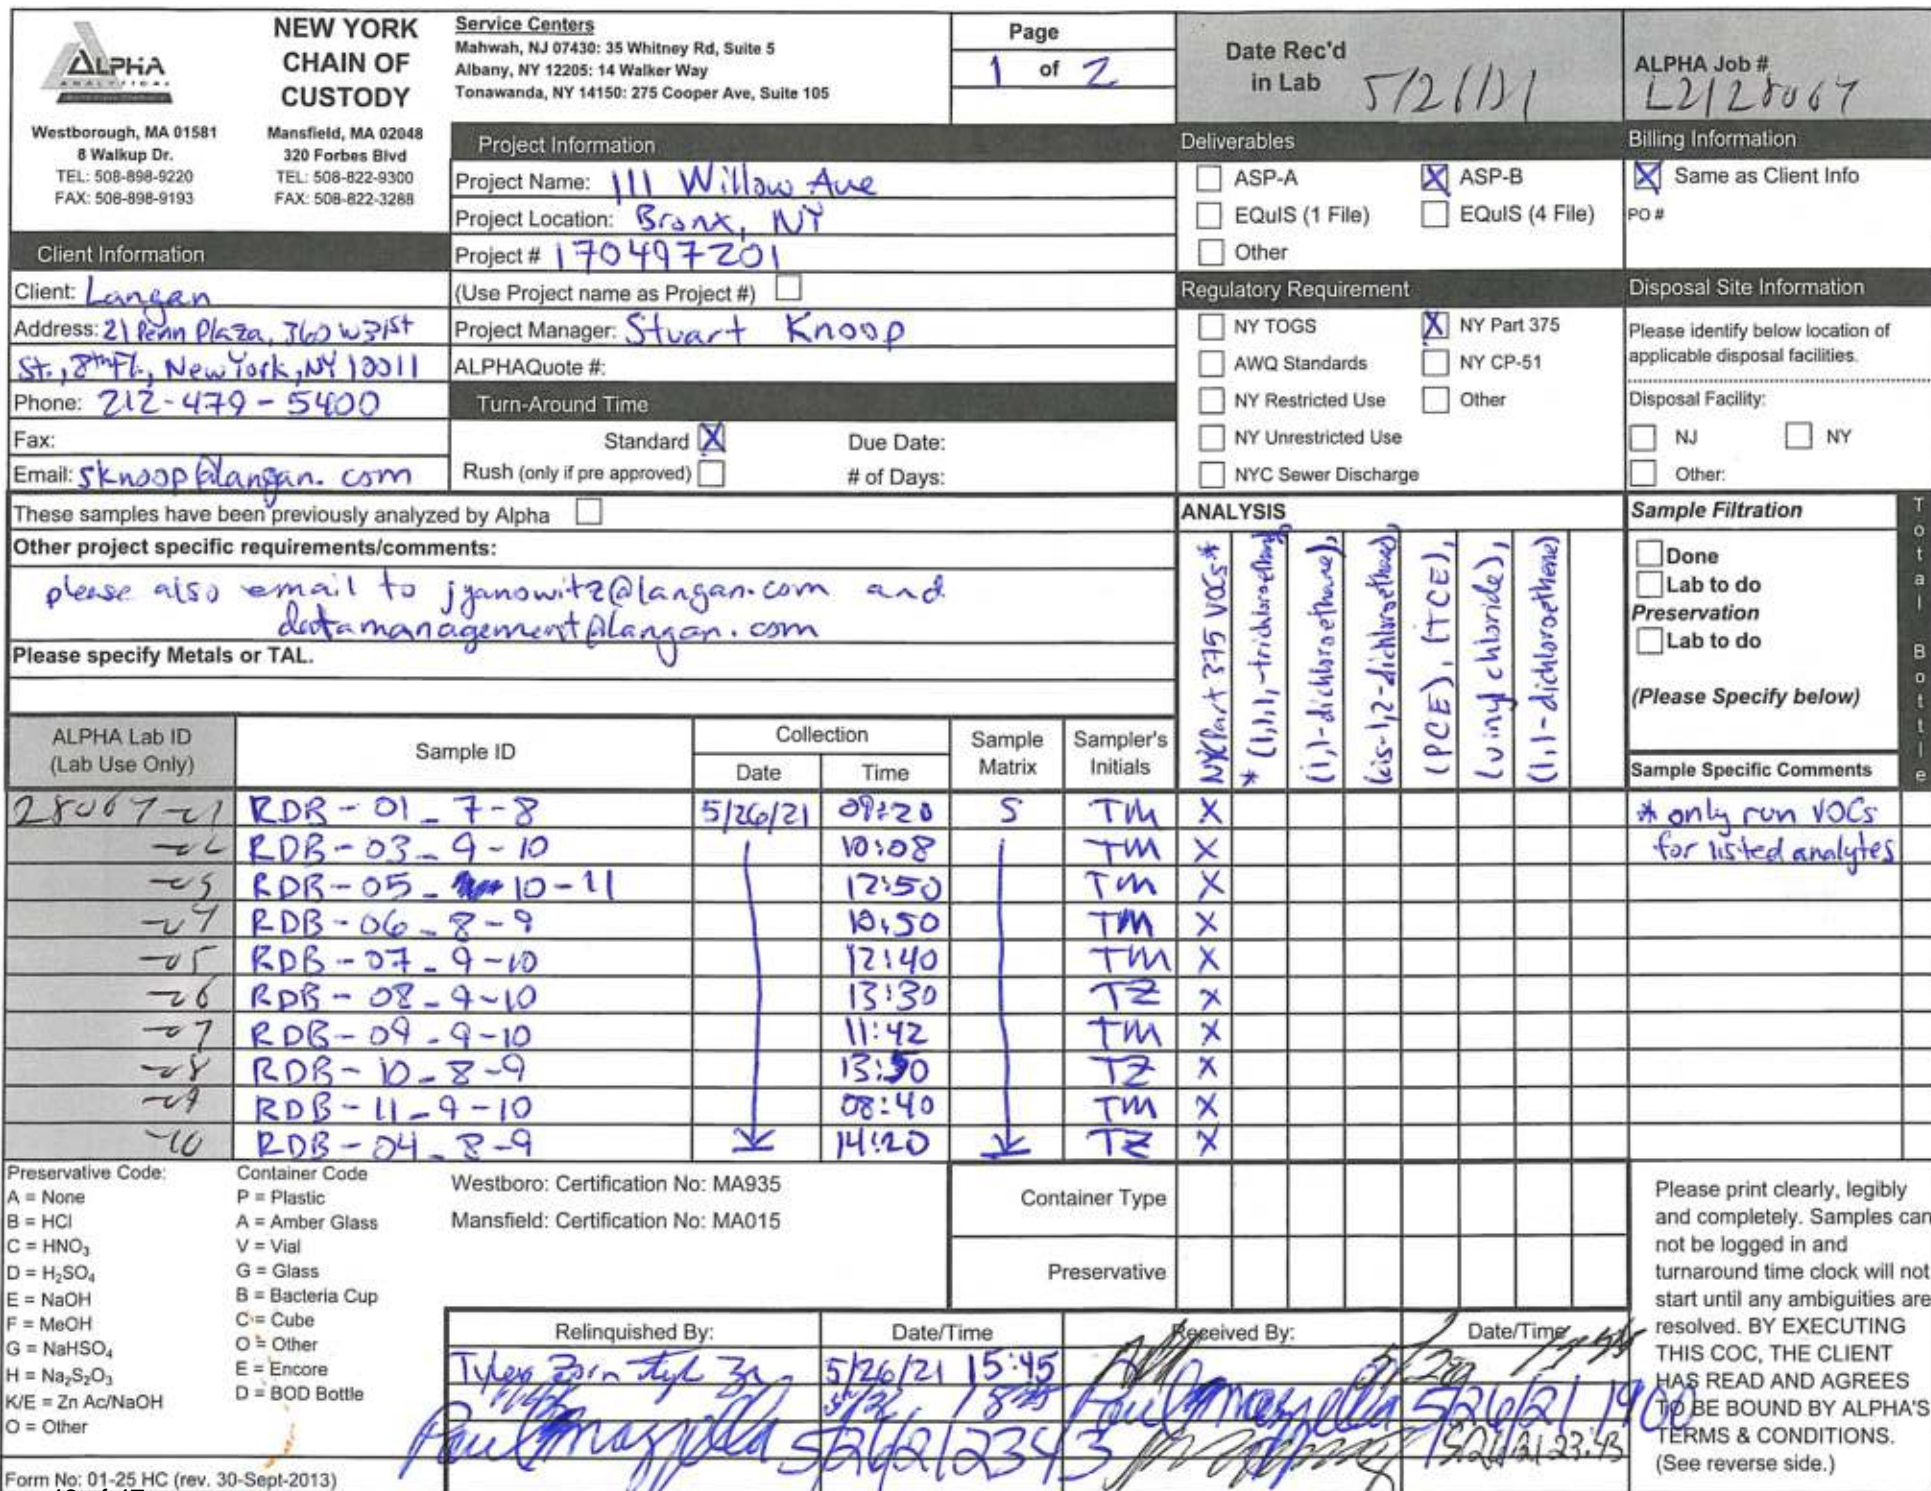 ALPHA
ANALYTICAL
Westborough, MA 01581
8 Walkup Dr.
TEL: 508-898-9220
FAX: 508-898-9193
NEW YORK
CHAIN OF
CUSTODY
Mansfield, MA 02048
320 Forbes Blvd
TEL: 508-822-9300
FAX: 508-822-3288
Service Centers
Mahwah, NJ 07430: 35 Whitney Rd, Suite 5
Albany, NY 12205: 14 Walker Way
Tonawanda, NY 14150: 275 Cooper Ave, Suite 105
Page
1 of 2
Date Rec'd
in Lab
ALPHA Job #
L2128067
Client Information
Client: Langan
Address: 21 Penn Plaza, 360 W 31st
St., 8th Fl., New York, NY 10011
Phone: 212-479-5400
Fax:
Email: sknoop@langan.com
Project Information
Project Name: 111 Willow Ave
Project Location: Bronx, NY
Project # 170497201
(Use Project name as Project #)
Project Manager: Stuart Knoop
ALPHAQuote #:
Turn-Around Time
Standard X Due Date:
Rush (only if pre approved) # of Days:
Deliverables
ASP-A X ASP-B
EQuIS (1 File) EQuIS (4 File)
Other
Regulatory Requirement
NY TOGS X NY Part 375
AWQ Standards NY CP-51
NY Restricted Use Other
NY Unrestricted Use
NYC Sewer Discharge
Billing Information
X Same as Client Info
PO #
Disposal Site Information
Please identify below location of
applicable disposal facilities.
Disposal Facility:
NJ NY
Other:
These samples have been previously analyzed by Alpha
Other project specific requirements/comments:
please also email to jyanowitz@langan.com and
datamanagement@langan.com
Please specify Metals or TAL.
ANALYSIS
Part 375 VOCs*
* (1,1,1,-trichloroethane)
(1,1-dichloroethane),
(cis-1,2-dichloroethene)
(PCE), (TCE),
(vinyl chloride),
(1,1-dichloroethene)
Sample Filtration
Done
Lab to do
Preservation
Lab to do
(Please Specify below)
Total Bottle
ALPHA Lab ID
(Lab Use Only)
Sample ID
Collection
Date Time
Sample
Matrix
Sampler's
Initials
Sample Specific Comments
28067-01 RDB-01_7-8 5/26/21 09:20 S TM X * only run VOCs
-02 RDB-03_9-10 10:08 TM X for listed analytes
-03 RDB-05_10-11 12:50 TM X
-04 RDB-06_8-9 10:50 TM X
-05 RDB-07_9-10 12:40 TM X
-06 RDB-08_9-10 13:30 TZ X
-07 RDB-09_9-10 11:42 TM X
-08 RDB-10_8-9 TZ X
-09 RDB-11_9-10 08:40 TM X
-10 RDB-04_8-9 14:20 TZ X
Preservative Code:
A = None
B = HCl
C = HNO3
D = H2SO4
E = NaOH
F = MeOH
G = NaHSO4
H = Na2S2O3
K/E = Zn Ac/NaOH
O = Other
Container Code
P = Plastic
A = Amber Glass
V = Vial
G = Glass
B = Bacteria Cup
C = Cube
O = Other
E = Encore
D = BOD Bottle
Westboro: Certification No: MA935
Mansfield: Certification No: MA015
Container Type
Preservative
Relinquished By: Date/Time Received By: Date/Time
5/26/21 15:45
Paul Mazzella 5/26/21 1900
Paul Mazzella 5/26/21 2343 23:43
Please print clearly, legibly
and completely. Samples can
not be logged in and
turnaround time clock will not
start until any ambiguities are
resolved. BY EXECUTING
THIS COC, THE CLIENT
HAS READ AND AGREES
TO BE BOUND BY ALPHA'S
TERMS & CONDITIONS.
(See reverse side.)
Form No: 01-25 HC (rev. 30-Sept-2013)